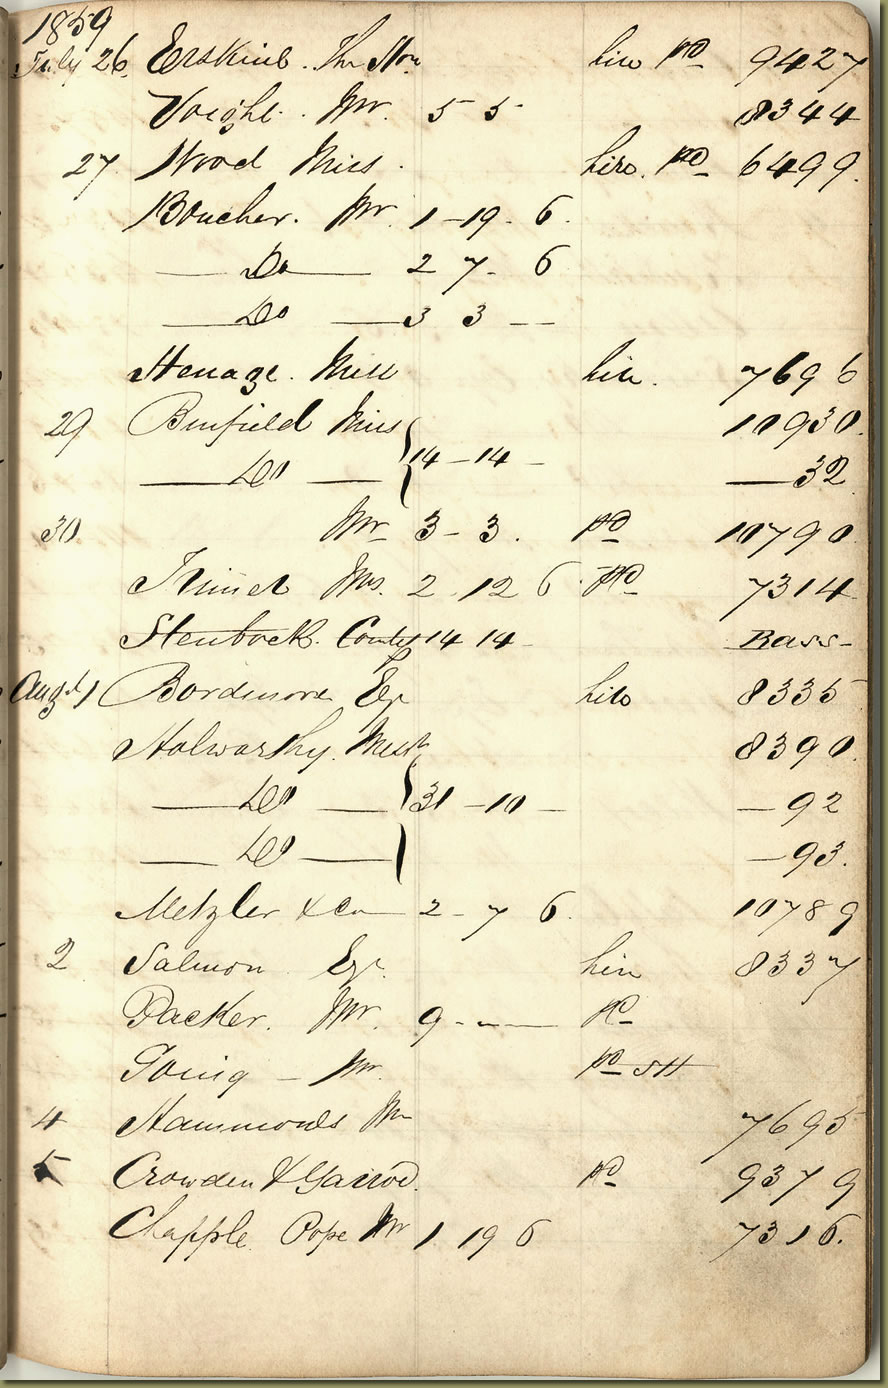 1859
July 26 Erskine. The Hon. hire pd 9427
Voight. Mr. 5 5 8344
27 Wood Miss. hire. pd 6499.
Boucher. Mr. 1-19-6.
—Do— 2 7-6
—Do— 3 3 --
Henage. Miss hire. 7696
29 Binfield Miss 10930.
—Do— 14-14- —32.
30 Mr 3-3. pd 10790
Mrs. 2 12 6. pd 7314
Stenbock. 14 14- Bass-
Augt. 1 Bordmore Esqr hire 8335
Holworthy. Miss 8390.
—Do— 31-10- —92
—Do— —93.
Metzler & Co— 2-7 6. 10789
2 Salmon Esqr. hire 8337
Packer. Mr. 9--— pd
Going — Mr. pd SH
4 Hammonds Mr 7695
5 Crowden & Garrod. pd 9379
Chapple Pope Mr 1 19 6 7316.